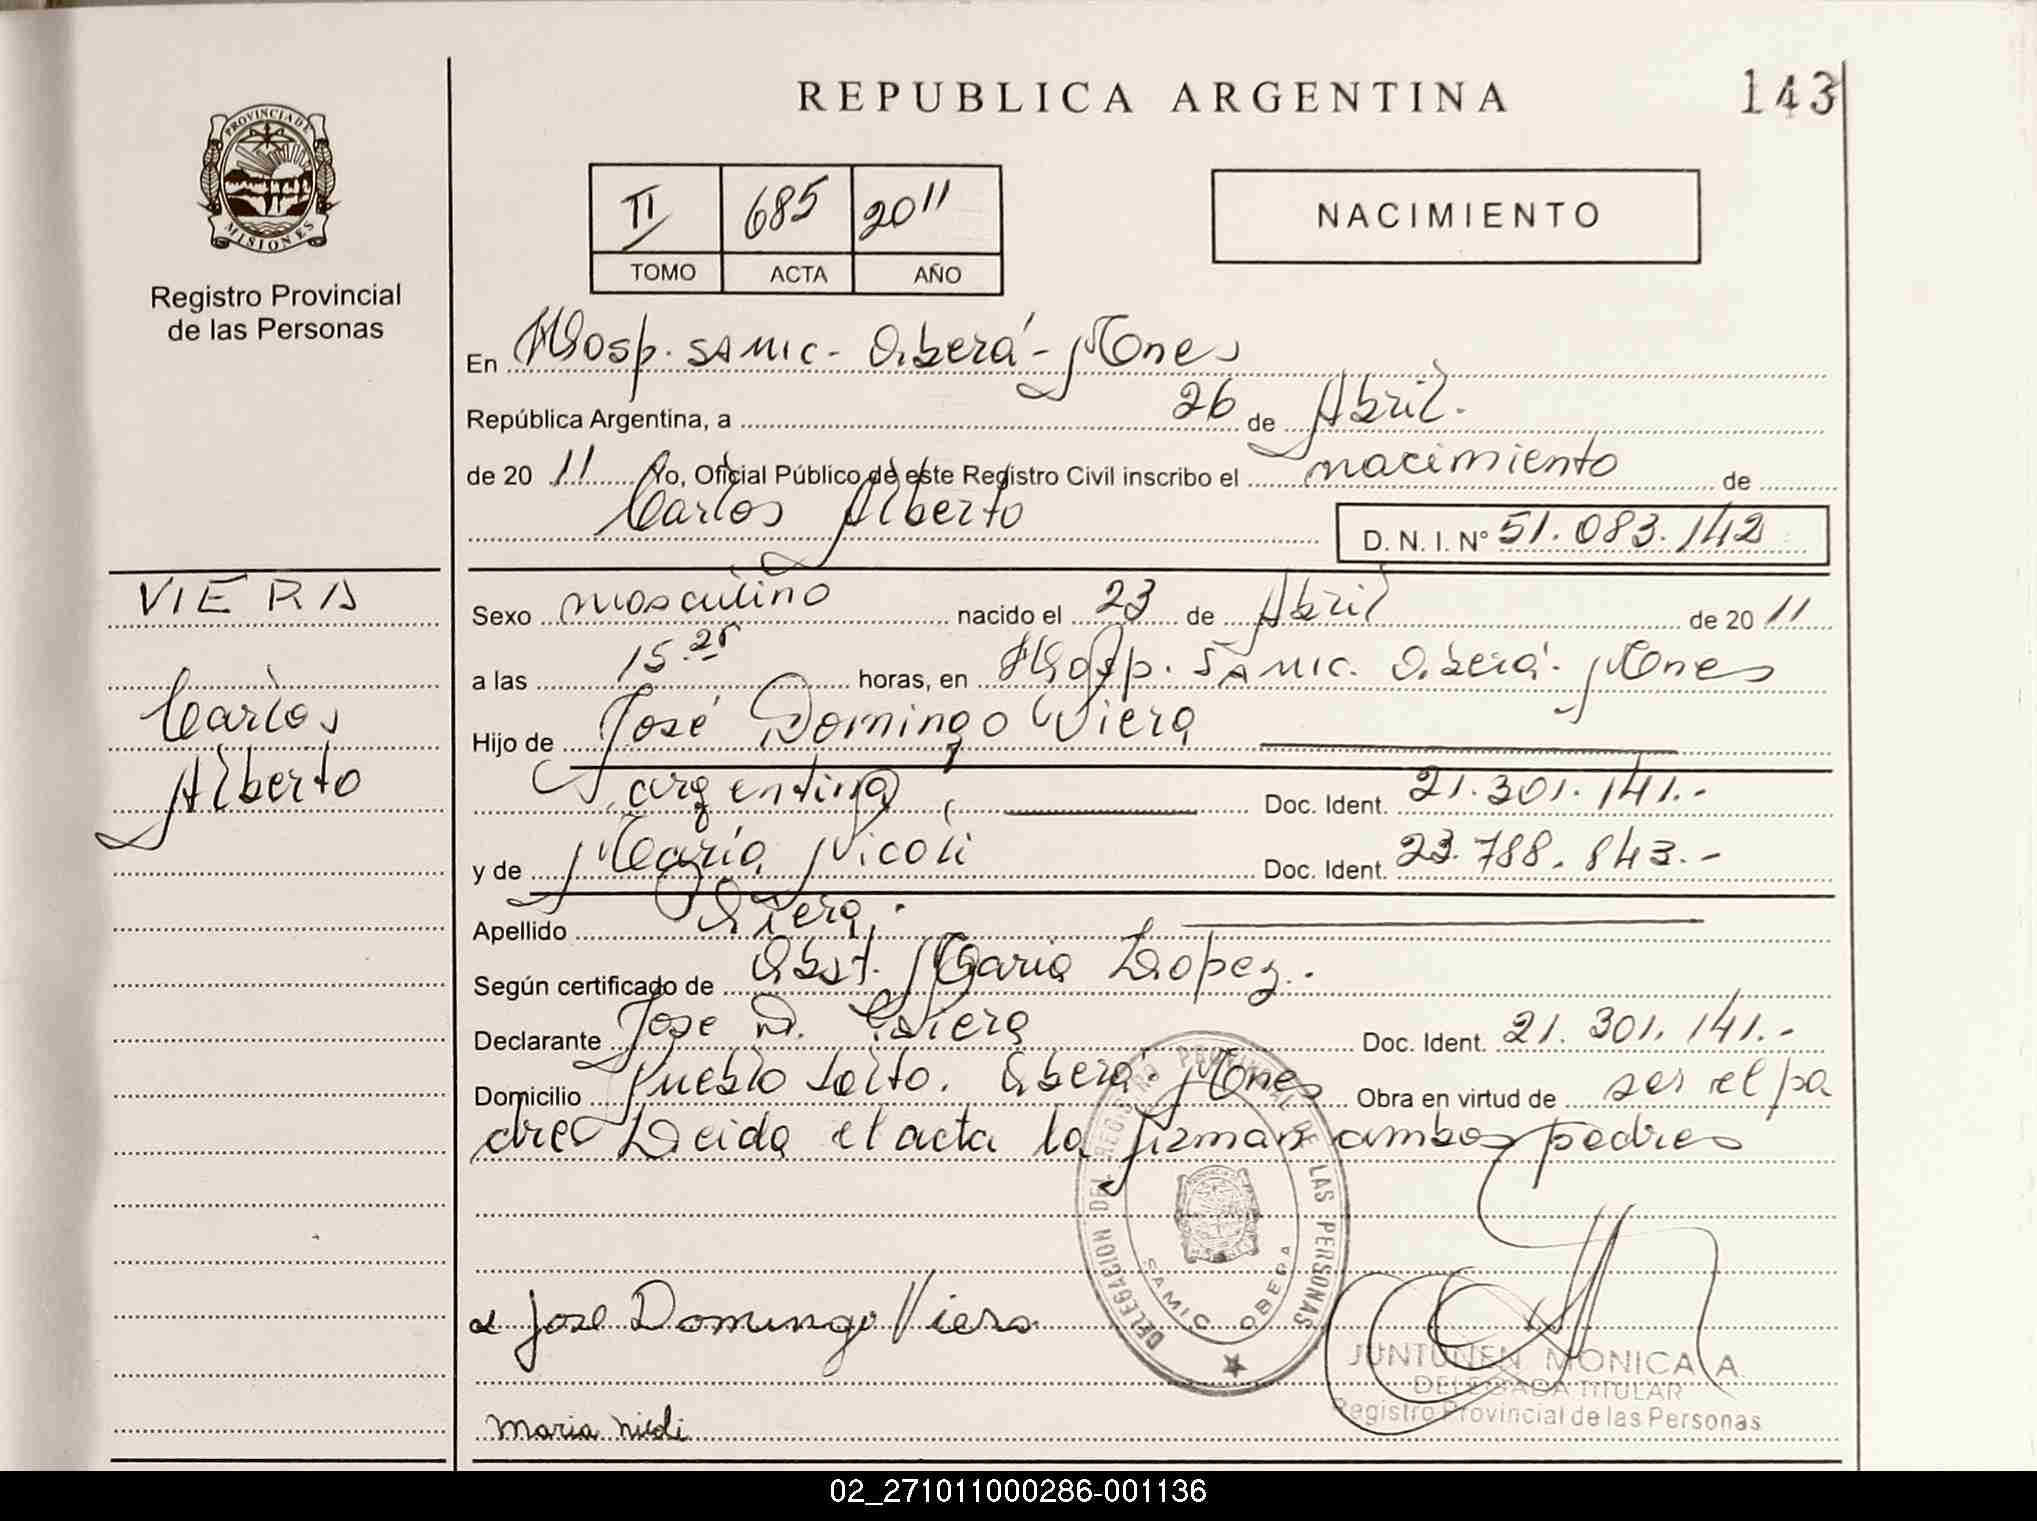 REPUBLICA ARGENTINA
143
PROVINCIA DE
MISIONES
Registro Provincial
de las Personas
II 685 2011
TOMO ACTA AÑO
NACIMIENTO
En Hosp. SAMIC - Oberá - Mones
República Argentina, a 26 de Abril.
de 20 11 Yo, Oficial Público de este Registro Civil inscribo el nacimiento de
Carlos Alberto D. N. I. N° 51.083.142
VIERA
Carlos
Alberto
Sexo masculino nacido el 23 de Abril de 20 11
a las 15.25 horas, en Hosp. SAMIC. Oberá - Mones
Hijo de José Domingo Viera
argentina Doc. Ident. 21.301.141.-
y de María Nicoli Doc. Ident. 23.788.843.-
Apellido Viera.
Según certificado de Obst. Maria Lopez.
Declarante Jose D. Viera Doc. Ident. 21.301.141.-
Domicilio Pueblo Salto. Oberá - Mones Obra en virtud de ser el pa
dre Leida el acta la firman ambos padres
DELEGACION DEL REGISTRO PROVINCIAL DE LAS PERSONAS
SAMIC OBERA
Jose Domingo Viera
JUNTUNEN MONICA A
DELEGADA TITULAR
Registro Provincial de las Personas
maria nicoli
02_271011000286-001136